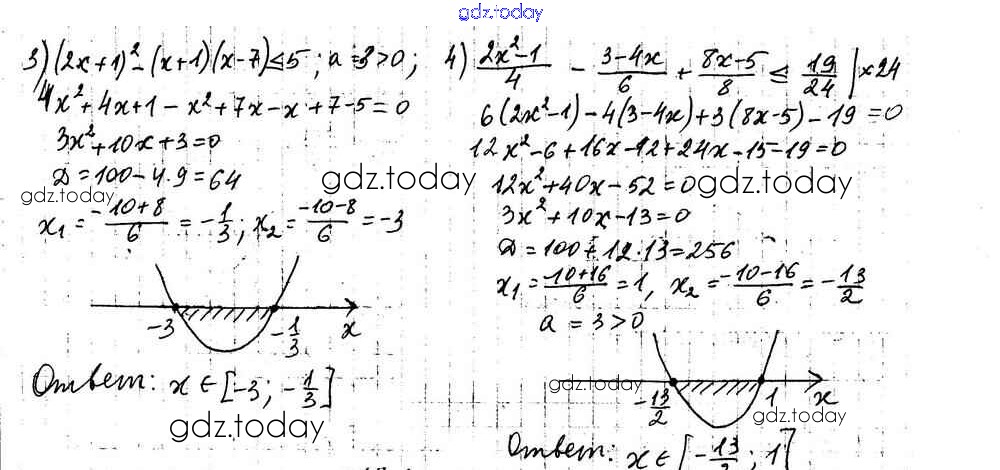 gdz.today
3) (2x+1)² - (x+1)(x-7) ≤ 5; a=3>0;
4x²+4x+1-x²+7x-x+7-5=0
3x²+10x+3=0
D=100-4·9=64
gdz.today
x₁=(-10+8)/6 = -1/3; x₂=(-10-8)/6 = -3
-3
-1/3
x
Ответ: x∈[-3; -1/3]
gdz.today
4) (2x²-1)/4 - (3-4x)/6 + (8x-5)/8 ≤ 19/24 | ×24
6(2x²-1)-4(3-4x)+3(8x-5)-19=0
12x²-6+16x-12+24x-15-19=0
gdz.today
12x²+40x-52=0
gdz.today
3x²+10x-13=0
D=100+12·13=256
x₁=(-10+16)/6=1, x₂=(-10-16)/6=-13/2
a=3>0
gdz.today
-13/2
1
x
gdz.today
Ответ: x∈[-13/2; 1]